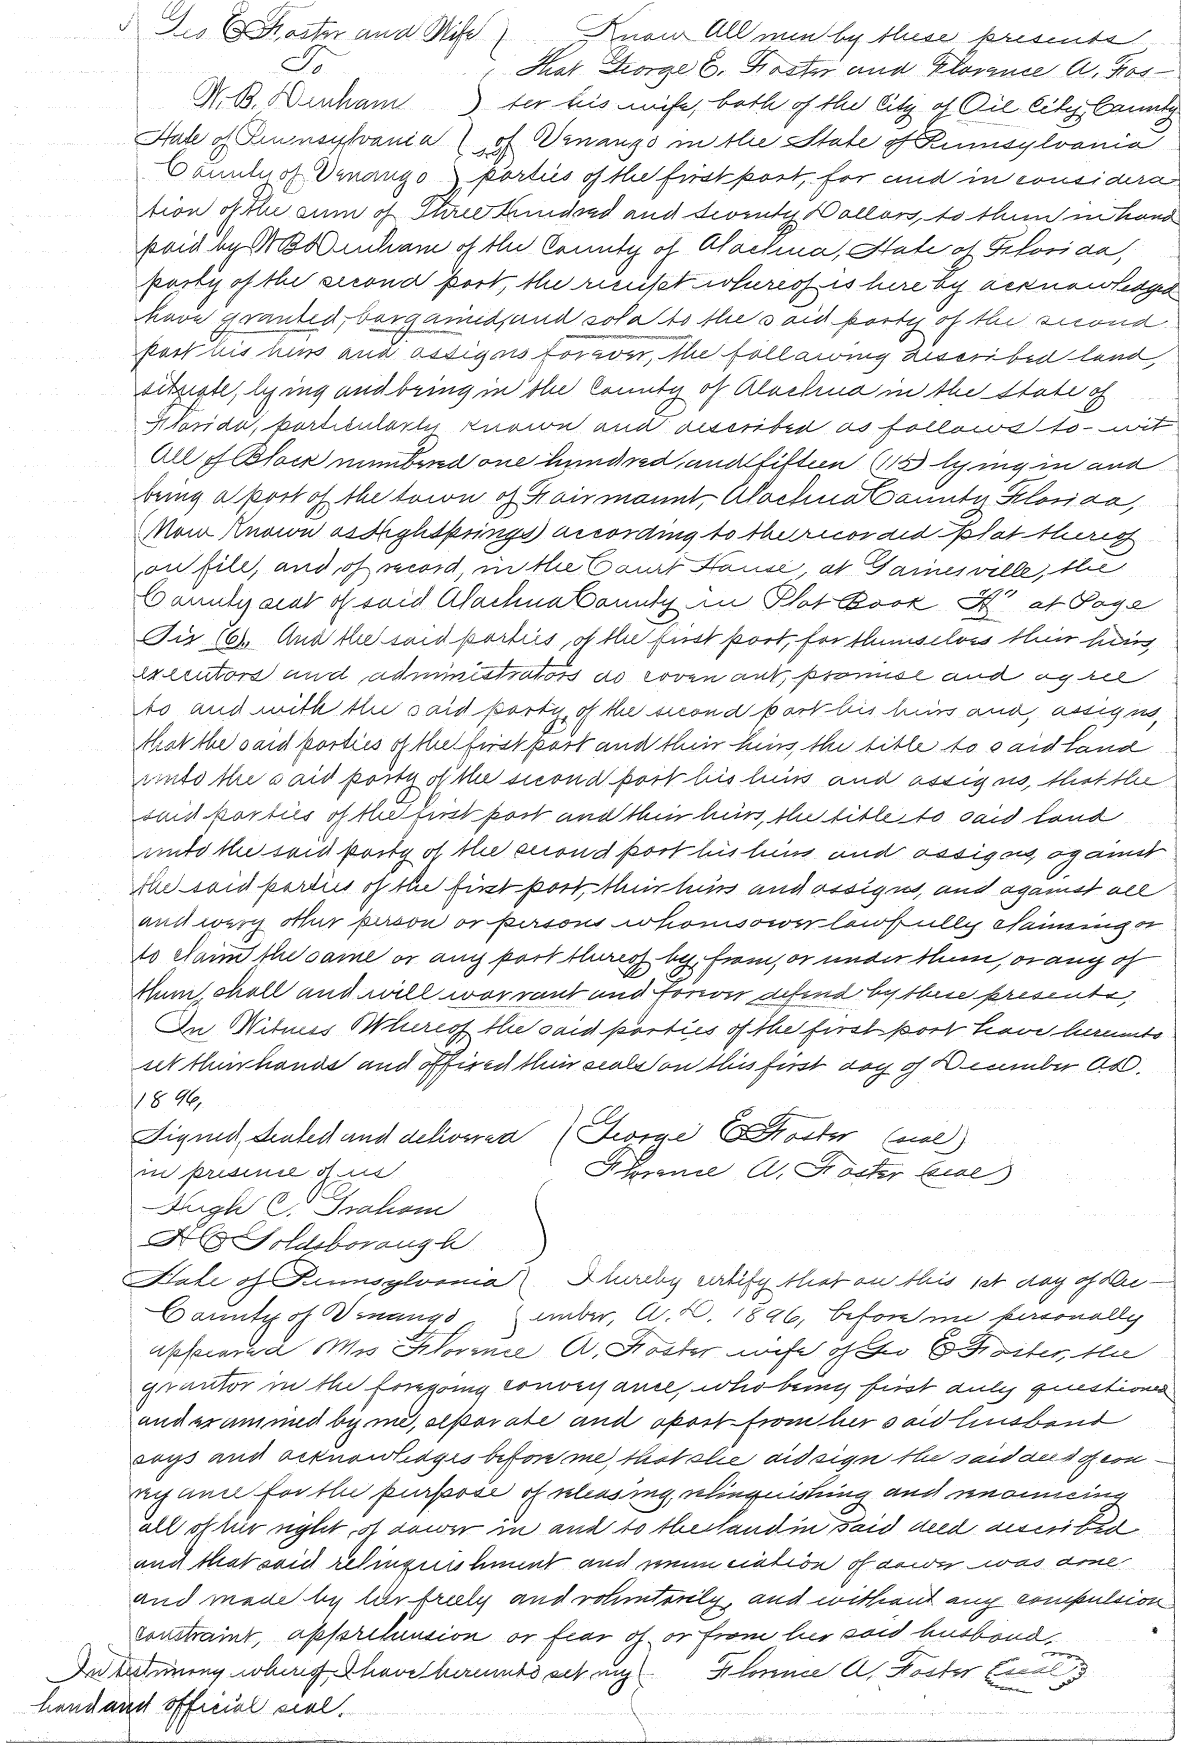 Geo E Foster and Wife Know All men by these presents
To that George E. Foster and Florence A. Fos-
W. B. Denham ter his wife, both of the City of Oil City, County
State of Pennsylvania of Venango in the State of Pennsylvania
County of Venango parties of the first part, for and in considera
tion of the sum of Three Hundred and Seventy Dollars, to them in hand
paid by W B Denham of the County of Alachua, State of Florida,
party of the second part, the receipt whereof is here by acknowledged
have granted, bargained, and sold to the said party of the second
part his heirs and assigns forever, the following described land,
situate, lying and being in the County of Alachua in the state of
Florida, particularly known and described as follows to-wit
All of Block numbered one hundred and fifteen (115) lying in and
being a part of the town of Fairmount, Alachua County Florida,
(Now Known as Highsprings) according to the recorded plat thereof
on file, and of record, in the Court House, at Gainesville, the
County seat of said Alachua County in Plat Book "A" at Page
Six (6). And the said parties, of the first part, for themselves their heirs,
executors and administrators do covenant, promise and agree
to and with the said party, of the second part his heirs and, assigns,
that the said parties of the first part and their heirs, the title to said land
unto the said party of the second part his heirs and assigns, that the
said parties of the first part and their heirs, the title to said land
unto the said party of the second part his heirs and assigns, against
the said parties of the first part, their heirs and assigns, and against all
and every other person or persons whomsoever lawfully claiming or
to claim the same or any part thereof by, from, or under them, or any of
them, shall and will warrant and forever defend by these presents,
In Witness Whereof the said parties of the first part have hereunto
set their hands and affixed their seals on this first day of December A.D.
1896,
Signed, Sealed and delivered George E Foster (seal)
in presence of us Florence A. Foster (seal)
Hugh C. Graham
Goldsborough
State of Pennsylvania I hereby certify that on this 1st day of Dec-
County of Venango ember, A. D. 1896, before me personally
appeared Mrs Florence A. Foster wife of Geo E Foster, the
grantor in the foregoing conveyance, who being first duly questioned
and examined by me, separate and apart from her said husband
says and acknowledges before me, that she did sign the said deed of con-
veyance for the purpose of releasing, relinquishing and renouncing
all of her right of dower in and to the land in said deed described
and that said relinquishment and renunciation of dower was done
and made by her freely and voluntarily, and without any compulsion
constraint, apprehension or fear of or from her said husband.
In testimony whereof, I have hereunto set my Florence A. Foster (seal)
hand and official seal.